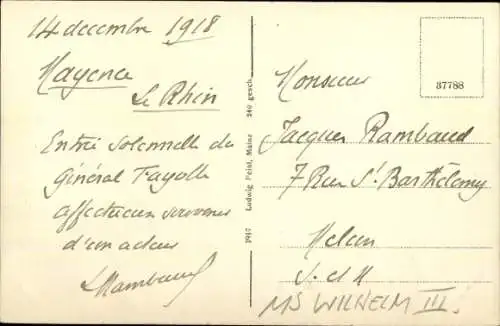 14 decembre 1918
Mayence
Le Rhin
Entrée solennelle du
Général Fayolle
affectueux souvenir
d'un acteur
Rambaud
1917 Ludwig Feist, Mainz 240 gesch.
37788
Monsieur
Jacques Rambaud
7 Rue St Barthélemy
Melun
S. et M
MS WILHELM III.